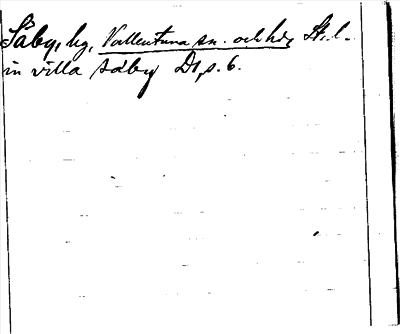 Såby, hg, Vallentuna sn. och hd, St. l.
in villa såby D1, s. 6.